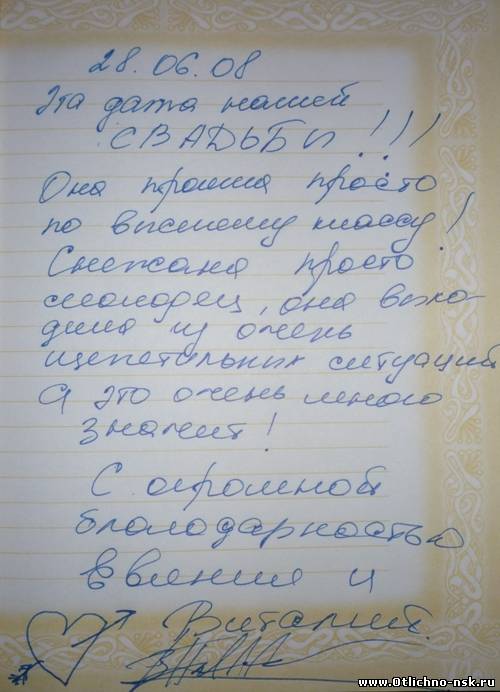 28.06.08
Эта дата нашей
СВАДЬБЫ!!!
Она прошла просто
по высшему классу!
Снежана просто
молодец, она выхо-
дила из очень
щепетильных ситуаций
А это очень много
значит!
С огромной
благодарностью
Евгения и
Виталий.
www.Otlichno-nsk.ru